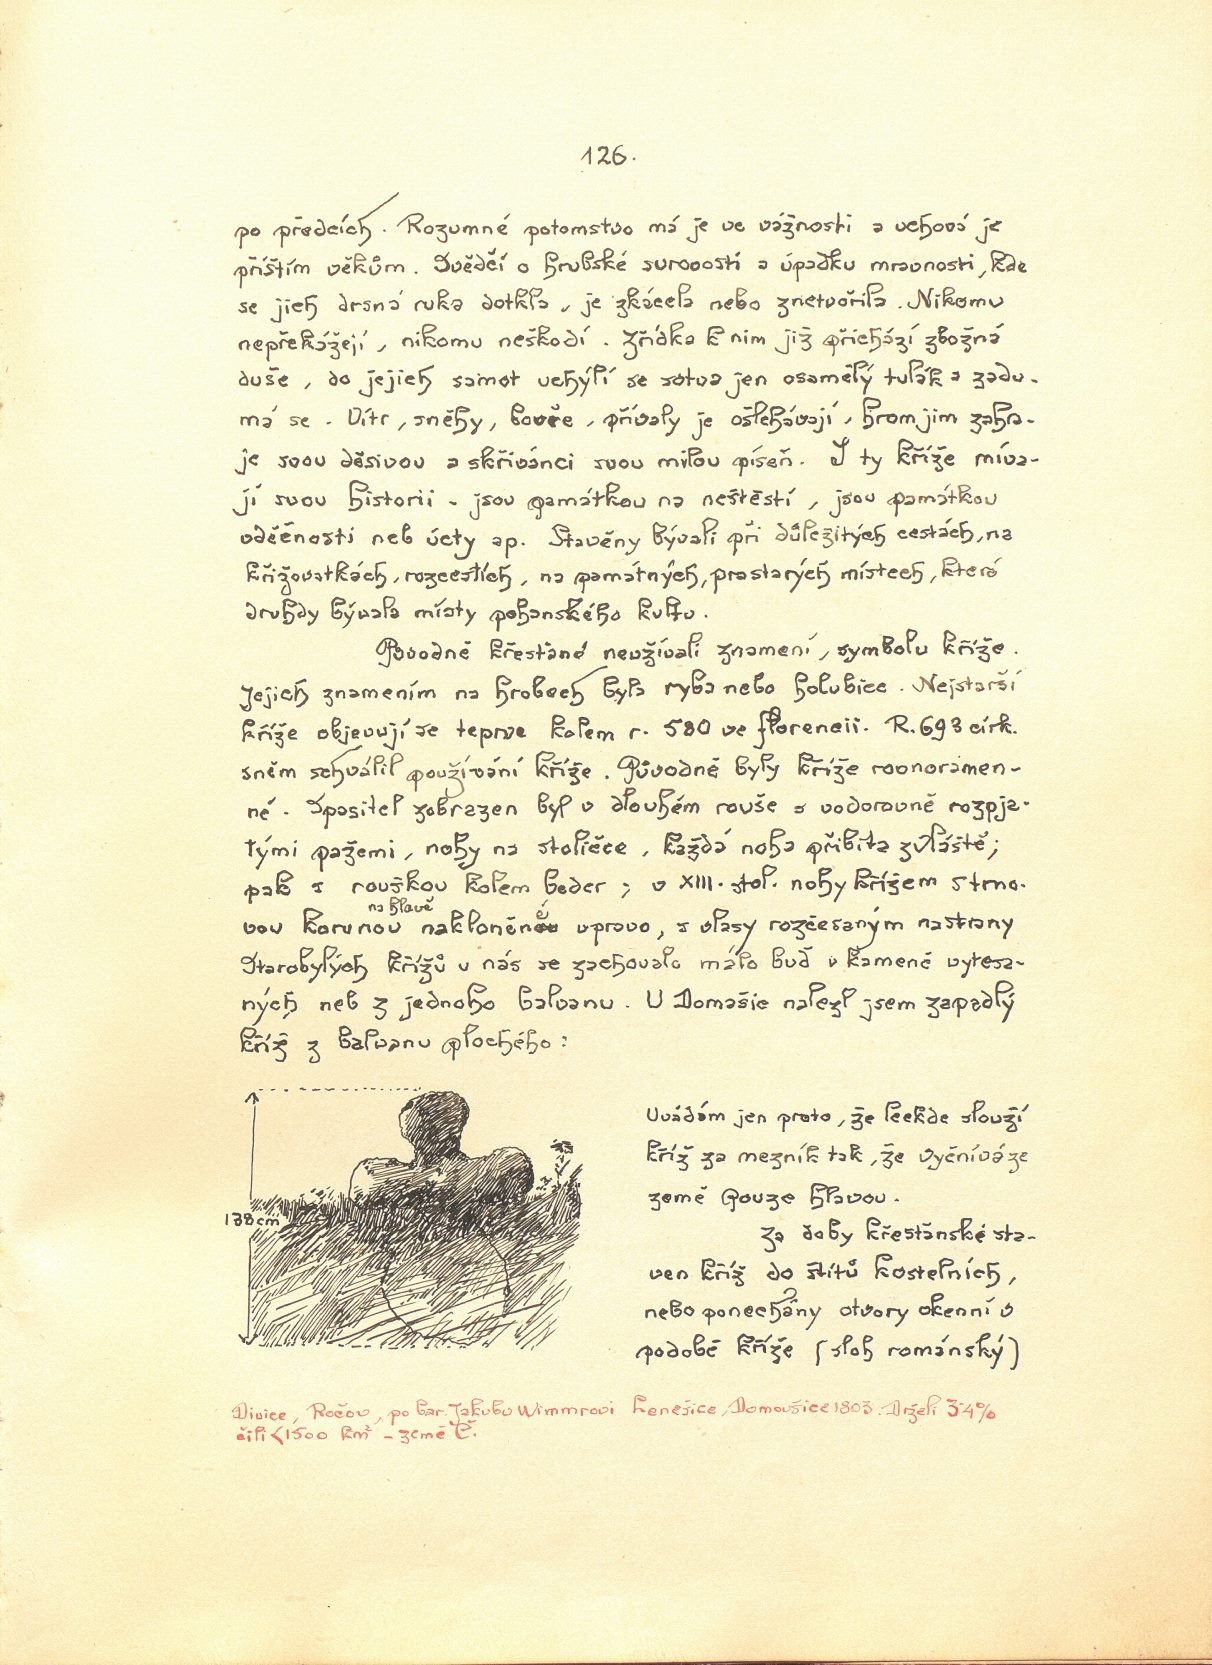 126.
po předcích. Rozumné potomstvo má je ve vážnosti a uchová je
příštím věkům. Svědčí o hrubské surovosti a úpadku mravnosti, kde
se jich drsná ruka dotkla, je zkácela nebo znetvořila. Nikomu
nepřekážejí, nikomu neškodí. Zřídka k nim již přichází zbožná
duše, do jejich samot uchýlí se sotva jen osamělý tulák a zadu-
má se. Vítr, sněhy, bouře, přívaly je ošlehávají, hrom jim zahra-
je svou děsivou a skřivánci svou milou píseň. I ty kříže míva-
jí svou historii - jsou památkou na neštěstí, jsou památkou
vděčnosti neb úcty ap. Stavěny bývali při důležitých cestách, na
křižovatkách, rozcestích, na památných, prastarých místech, která
druhdy bývala místy pohanského kultu.
Původně křesťané neužívali znamení, symbolu kříže.
Jejich znamením na hrobech byla ryba nebo holubice. Nejstarší
kříže objevují se teprve kolem r. 580 ve Florencii. R. 693 círk.
sněm schválil používání kříže. Původně byly kříže rovnoramen-
né. Spasitel zobrazen byl v dlouhém rouše s vodorovně rozpja-
týmí pažemi, nohy na stoličce, každá noha přibita zvláště;
pak s rouškou kolem beder; v XIII. stol. nohy křížem s trno-
na hlavě
vou korunou nakloněné vpravo, s vlasy rozčesaným na strany
Starobylých křížů u nás se zachovalo málo buď v kameně vytesa-
ných neb z jednoho balvanu. U Domašic nalezl jsem zapadlý
kříž z balvanu plochého:
138 cm
Uvádám jen proto, že leckde slouží
kříž za mezník tak, že vyčnívá ze
země pouze hlavou.
Za doby křesťánské sta-
ven kříž do štítů kostelních,
nebo ponechány otvory okenní v
podobě kříže (sloh románský)
Divice, Ročov, po bar. Jakubu Wimmrovi Lenešice, Domoušice 1803. Drželi 3-4%
čili <1500 km² - země Č.